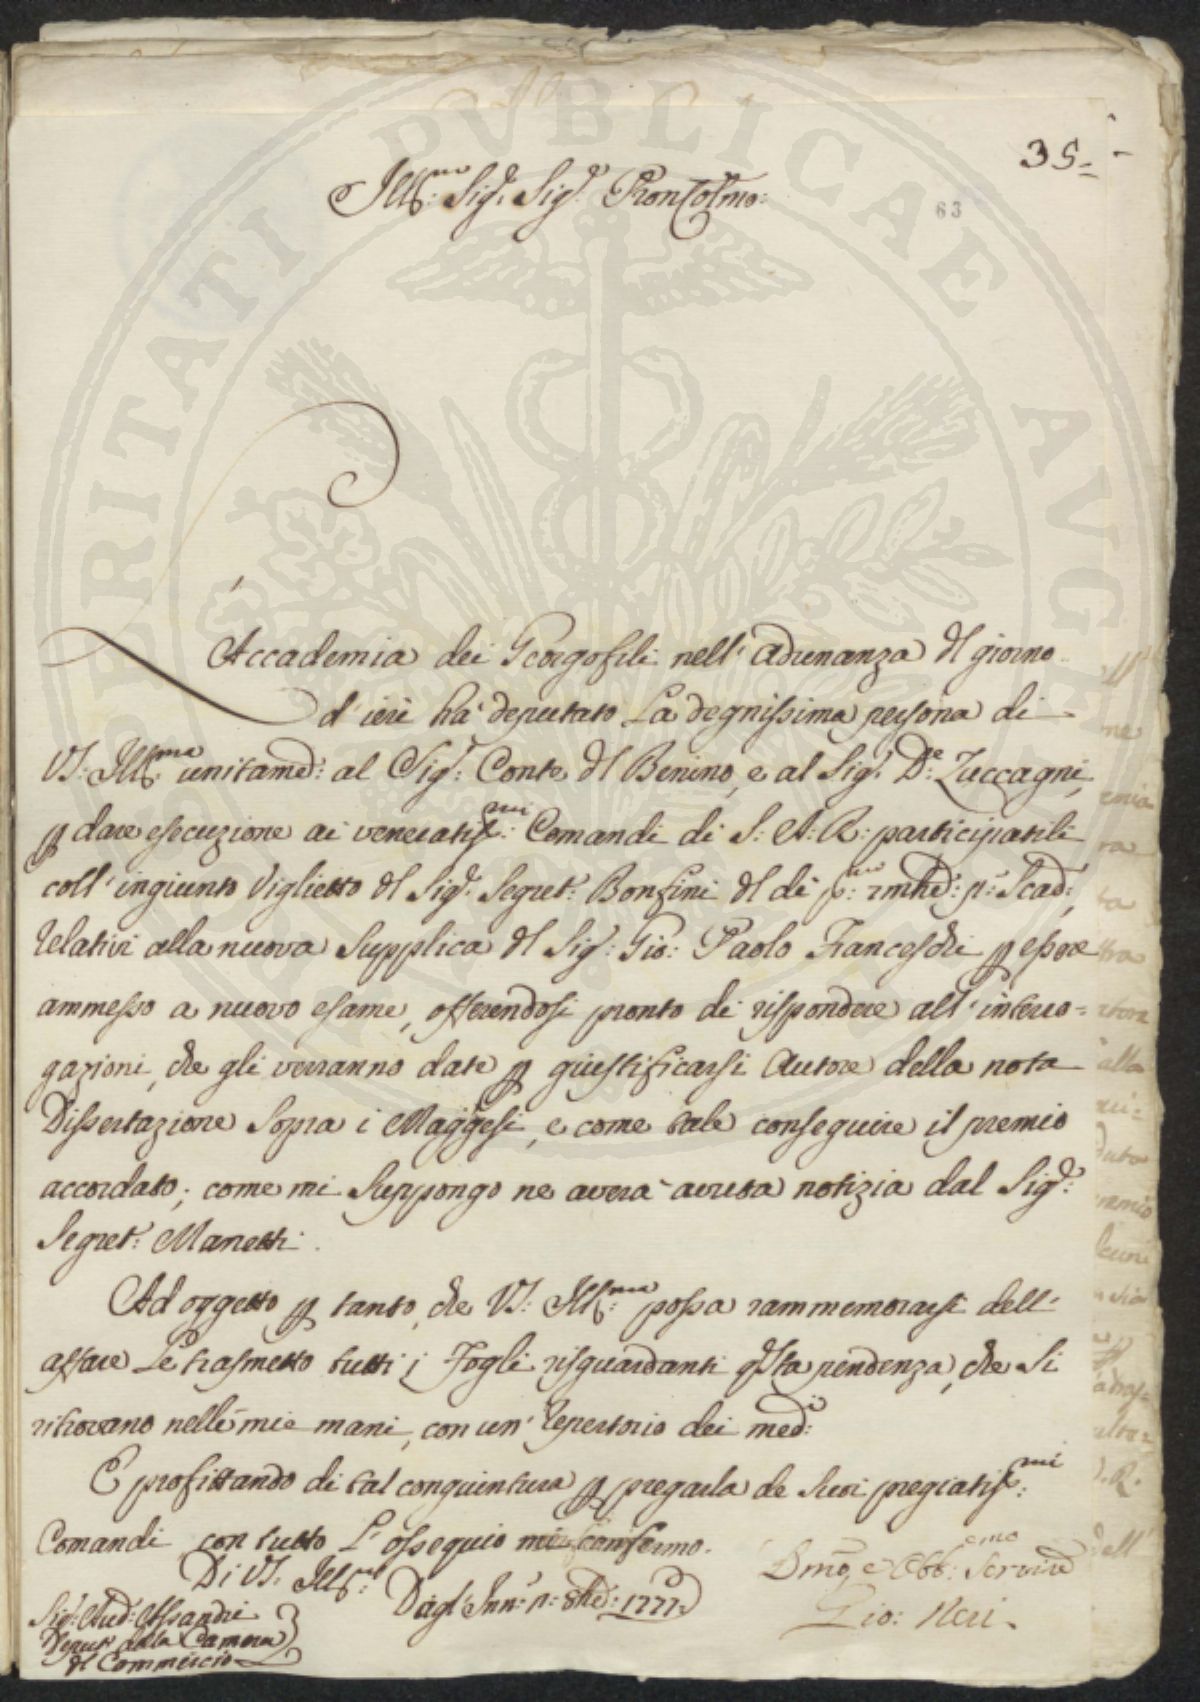 35=
63
Ill^mo: Sig.^r Sig.^r Pron Colmo:
L'Accademia dei Georgofili nell'adunanza del giorno
d'ieri ha deputato la degnissima persona di
VS: Ill^ma: unitamᵉ: al Sig.^r: Conte del Benino, e al Sig.^r D.^r: Zuccagni,
p dare esecuzione ai veneratiss^mi: Comandi di S: A: R: participatili
coll'ingiunto Viglietto del Sig.^r: Segret: Bonfini del dì p:^mo 7mbᵉ: p: Scad:,
relativi alla nuova Supplica del Sig.^r: Gio: Paolo Franceschi p essere
ammesso a nuovo esame, offerendosi pronto di rispondere all'interro=
gazioni, che gli verranno date p giustificarsi Autore della nota
Dissertazione Sopra i Maggesi, e come tale conseguire il premio
accordato; come mi Suppongo ne averà avuta notizia dal Sig.^r:
Segret: Manetti.
Ad oggetto p tanto, che VS: Ill^ma: possa rammemorarsi dell'
affare Le trasmetto tutti i Fogli risguardanti qsta pendenza, che Si
ritrovano nelle mie mani, con un'Repertorio dei medᵢ:
E profittando di tal congiuntura p pregarla de Suoi pregiatiss^mi:
Comandi, con tutto L'ossequio mi confermo.
Di VS: Ill^ma:
Dagl'Inn: p: 8bre: 1777
Dmo, e Obb: Serv^re
Gio: Neri.
Sig.^r: Aud: Assandri
Deput: della Camera
di Commercio
PROSPERITATI PVBLICAE AVGE